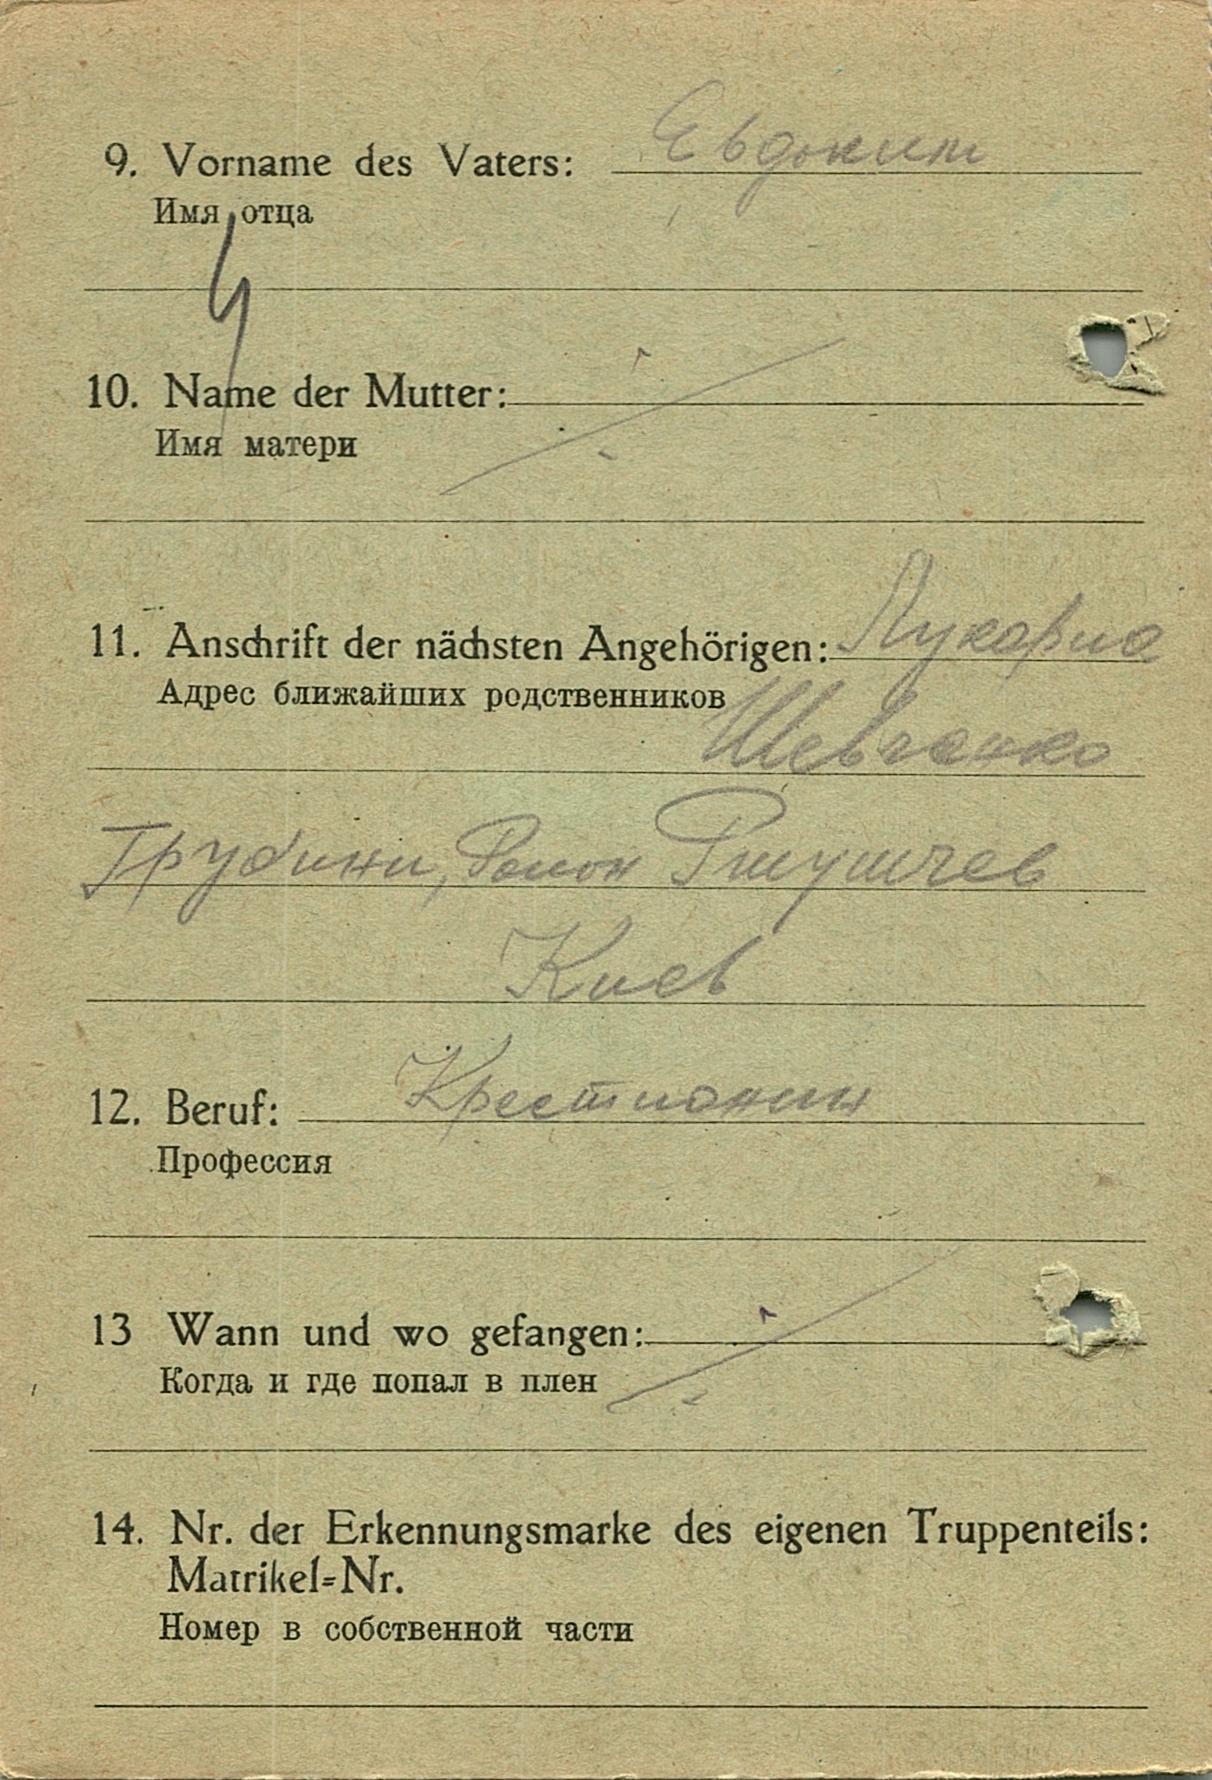 9. Vorname des Vaters: Евдоким
Имя отца
10. Name der Mutter:
Имя матери
11. Anschrift der nächsten Angehörigen: Лукария
Адрес ближайших родственников
Шевченко
Грубини, Район
Киев
12. Beruf: Крестианин
Профессия
13 Wann und wo gefangen:
Когда и где попал в плен
14. Nr. der Erkennungsmarke des eigenen Truppenteils:
Matrikel=Nr.
Номер в собственной части